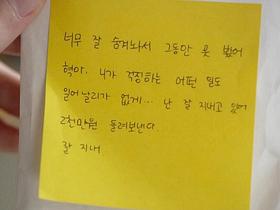 너무 잘 숨겨놔서 그동안 못 봤어
혁아. 니가 걱정하는 어떤 일도
일어날리가 없게... 난 잘 지내고 있어
2천만원 돌려보낸다.
잘 지내.